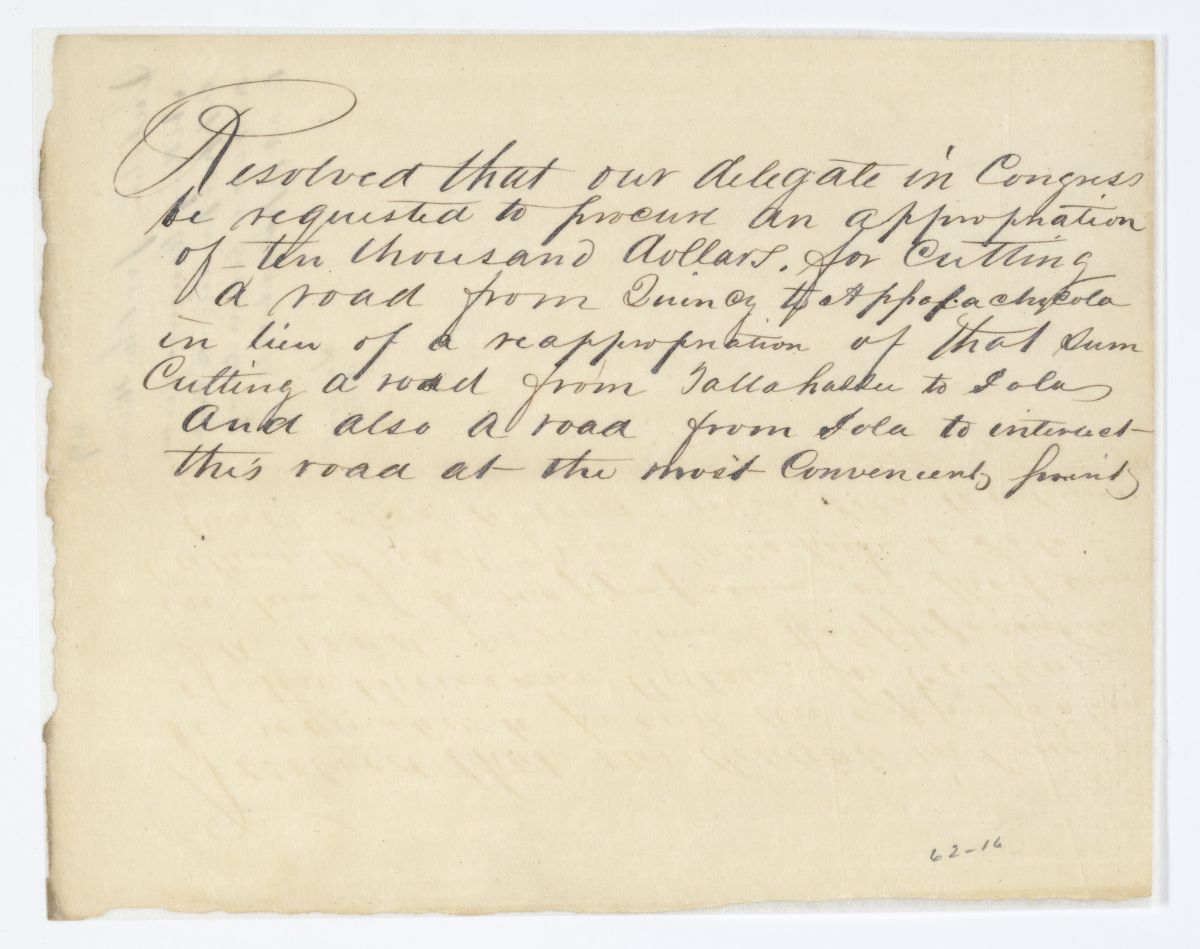 Resolved that our delegate in Congress
be requested to procure an appropriation
of ten thousand dollars. for Cutting
a road from Quincy to Appalachycola
in lieu of a reappropriation of that sum
Cutting a road from Tallahassee to Iola
And also a road from Iola to intersect
this road at the most Convenient point
62-16